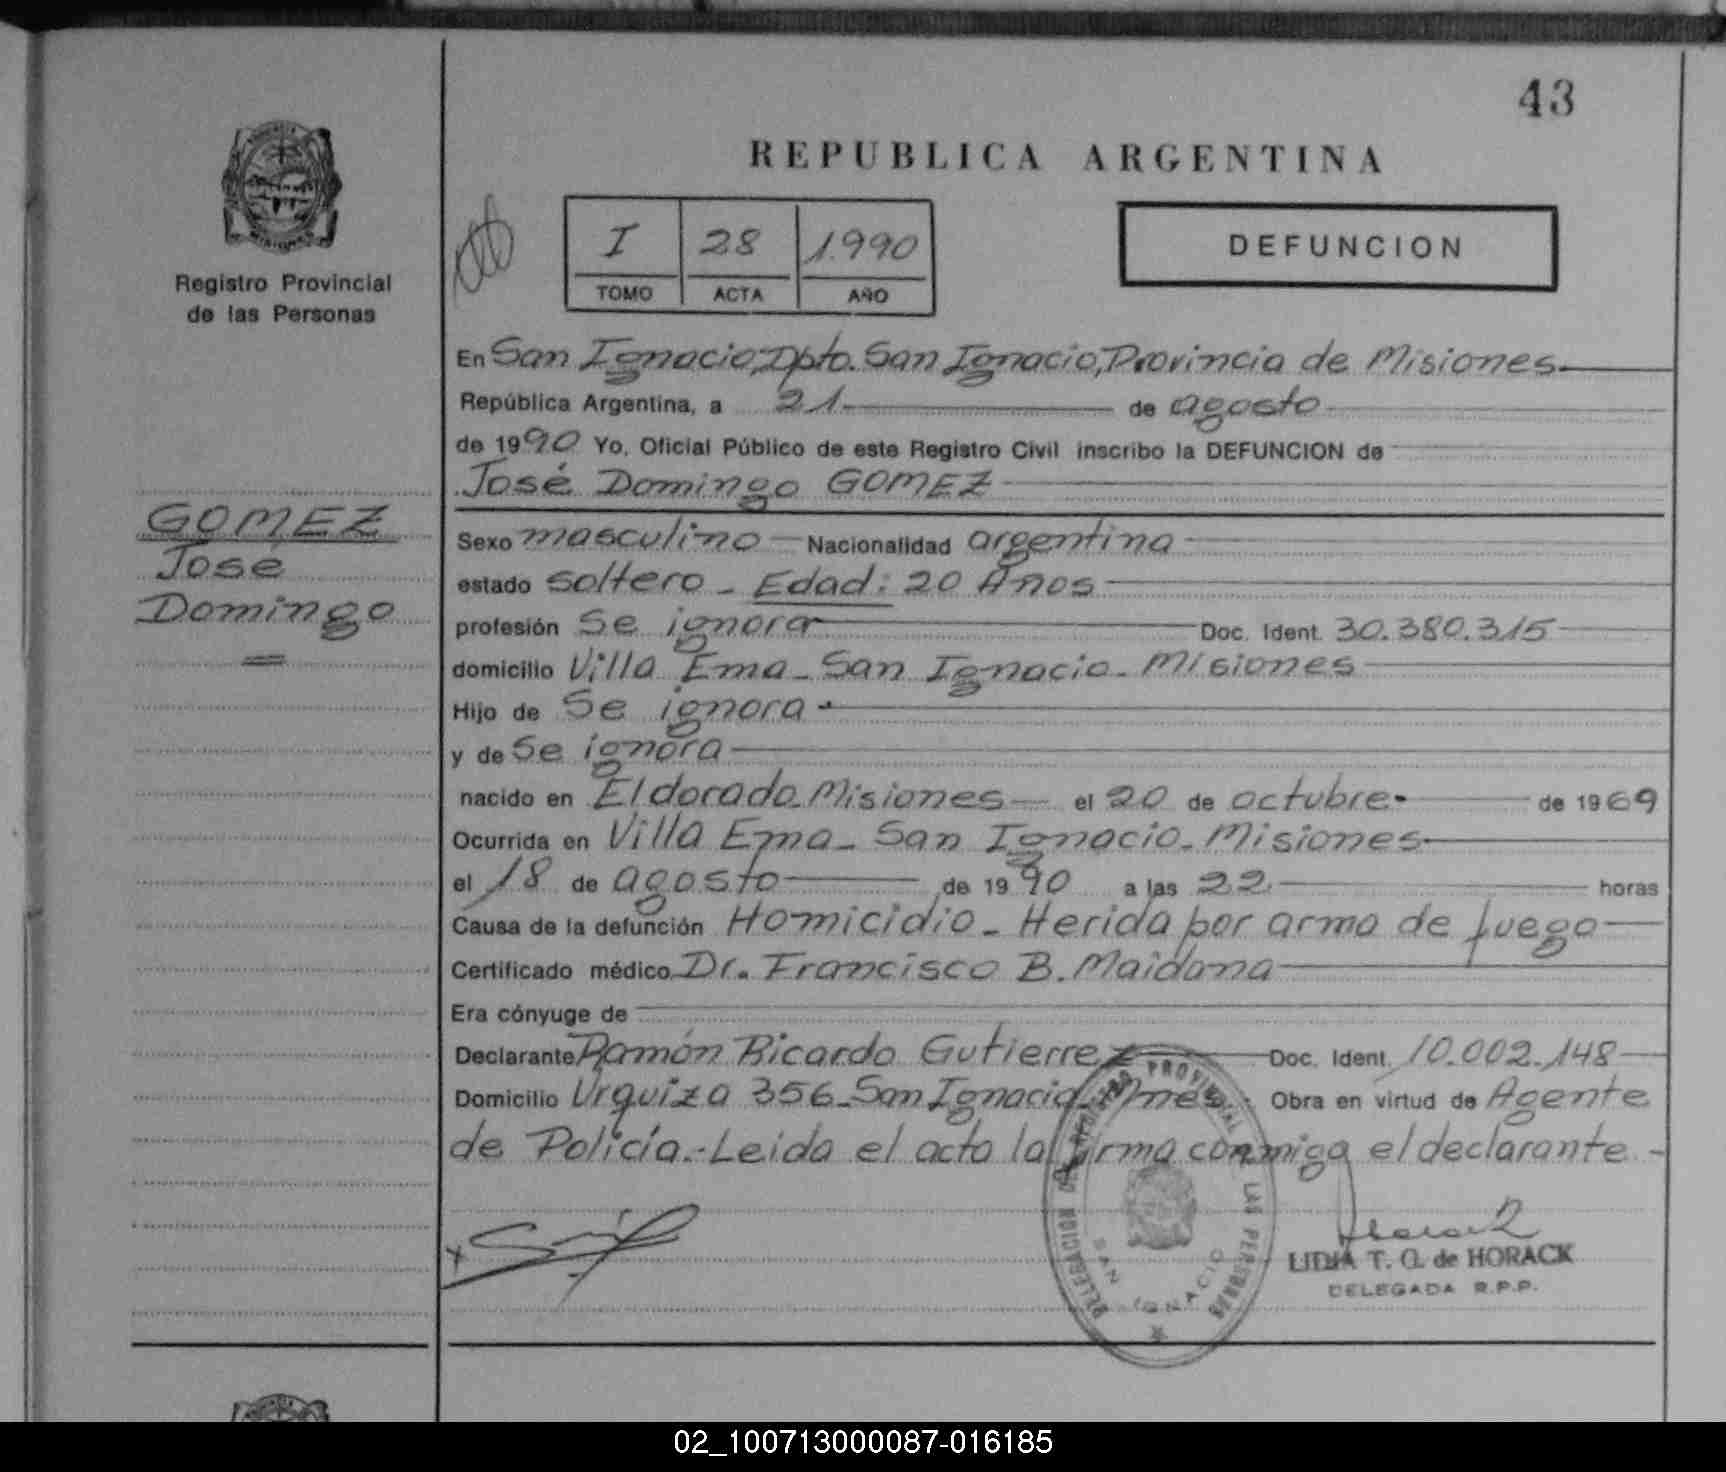 43
REPUBLICA ARGENTINA
MISIONES
Registro Provincial
de las Personas
I 28 1.990
TOMO ACTA AÑO
DEFUNCION
GOMEZ
José
Domingo
En San Ignacio, Dpto. San Ignacio, Provincia de Misiones
República Argentina, a 21 de agosto
de 1990 Yo, Oficial Público de este Registro Civil inscribo la DEFUNCION de
José Domingo GOMEZ
Sexo masculino Nacionalidad argentina
estado soltero - Edad: 20 Años
profesión Se ignora Doc. Ident. 30.380.315
domicilio Villa Ema - San Ignacio - Misiones
Hijo de Se ignora
y de Se ignora
nacido en Eldorado Misiones el 20 de octubre de 1969
Ocurrida en Villa Ema - San Ignacio - Misiones
el 18 de agosto de 1990 a las 22 horas
Causa de la defunción Homicidio - Herida por arma de fuego
Certificado médico Dr. Francisco B. Maidana
Era cónyuge de
Declarante Ramón Ricardo Gutierrez Doc. Ident. 10.002.148
Domicilio Urquiza 356 - San Ignacio - Mnes. Obra en virtud de Agente
de Policía.- Leida el acta la firma conmigo el declarante -
DELEGACION DEL REGISTRO PROVINCIAL DE LAS PERSONAS
SAN IGNACIO
LIDIA T. G. de HORACK
DELEGADA R.P.P.
02_100713000087-016185